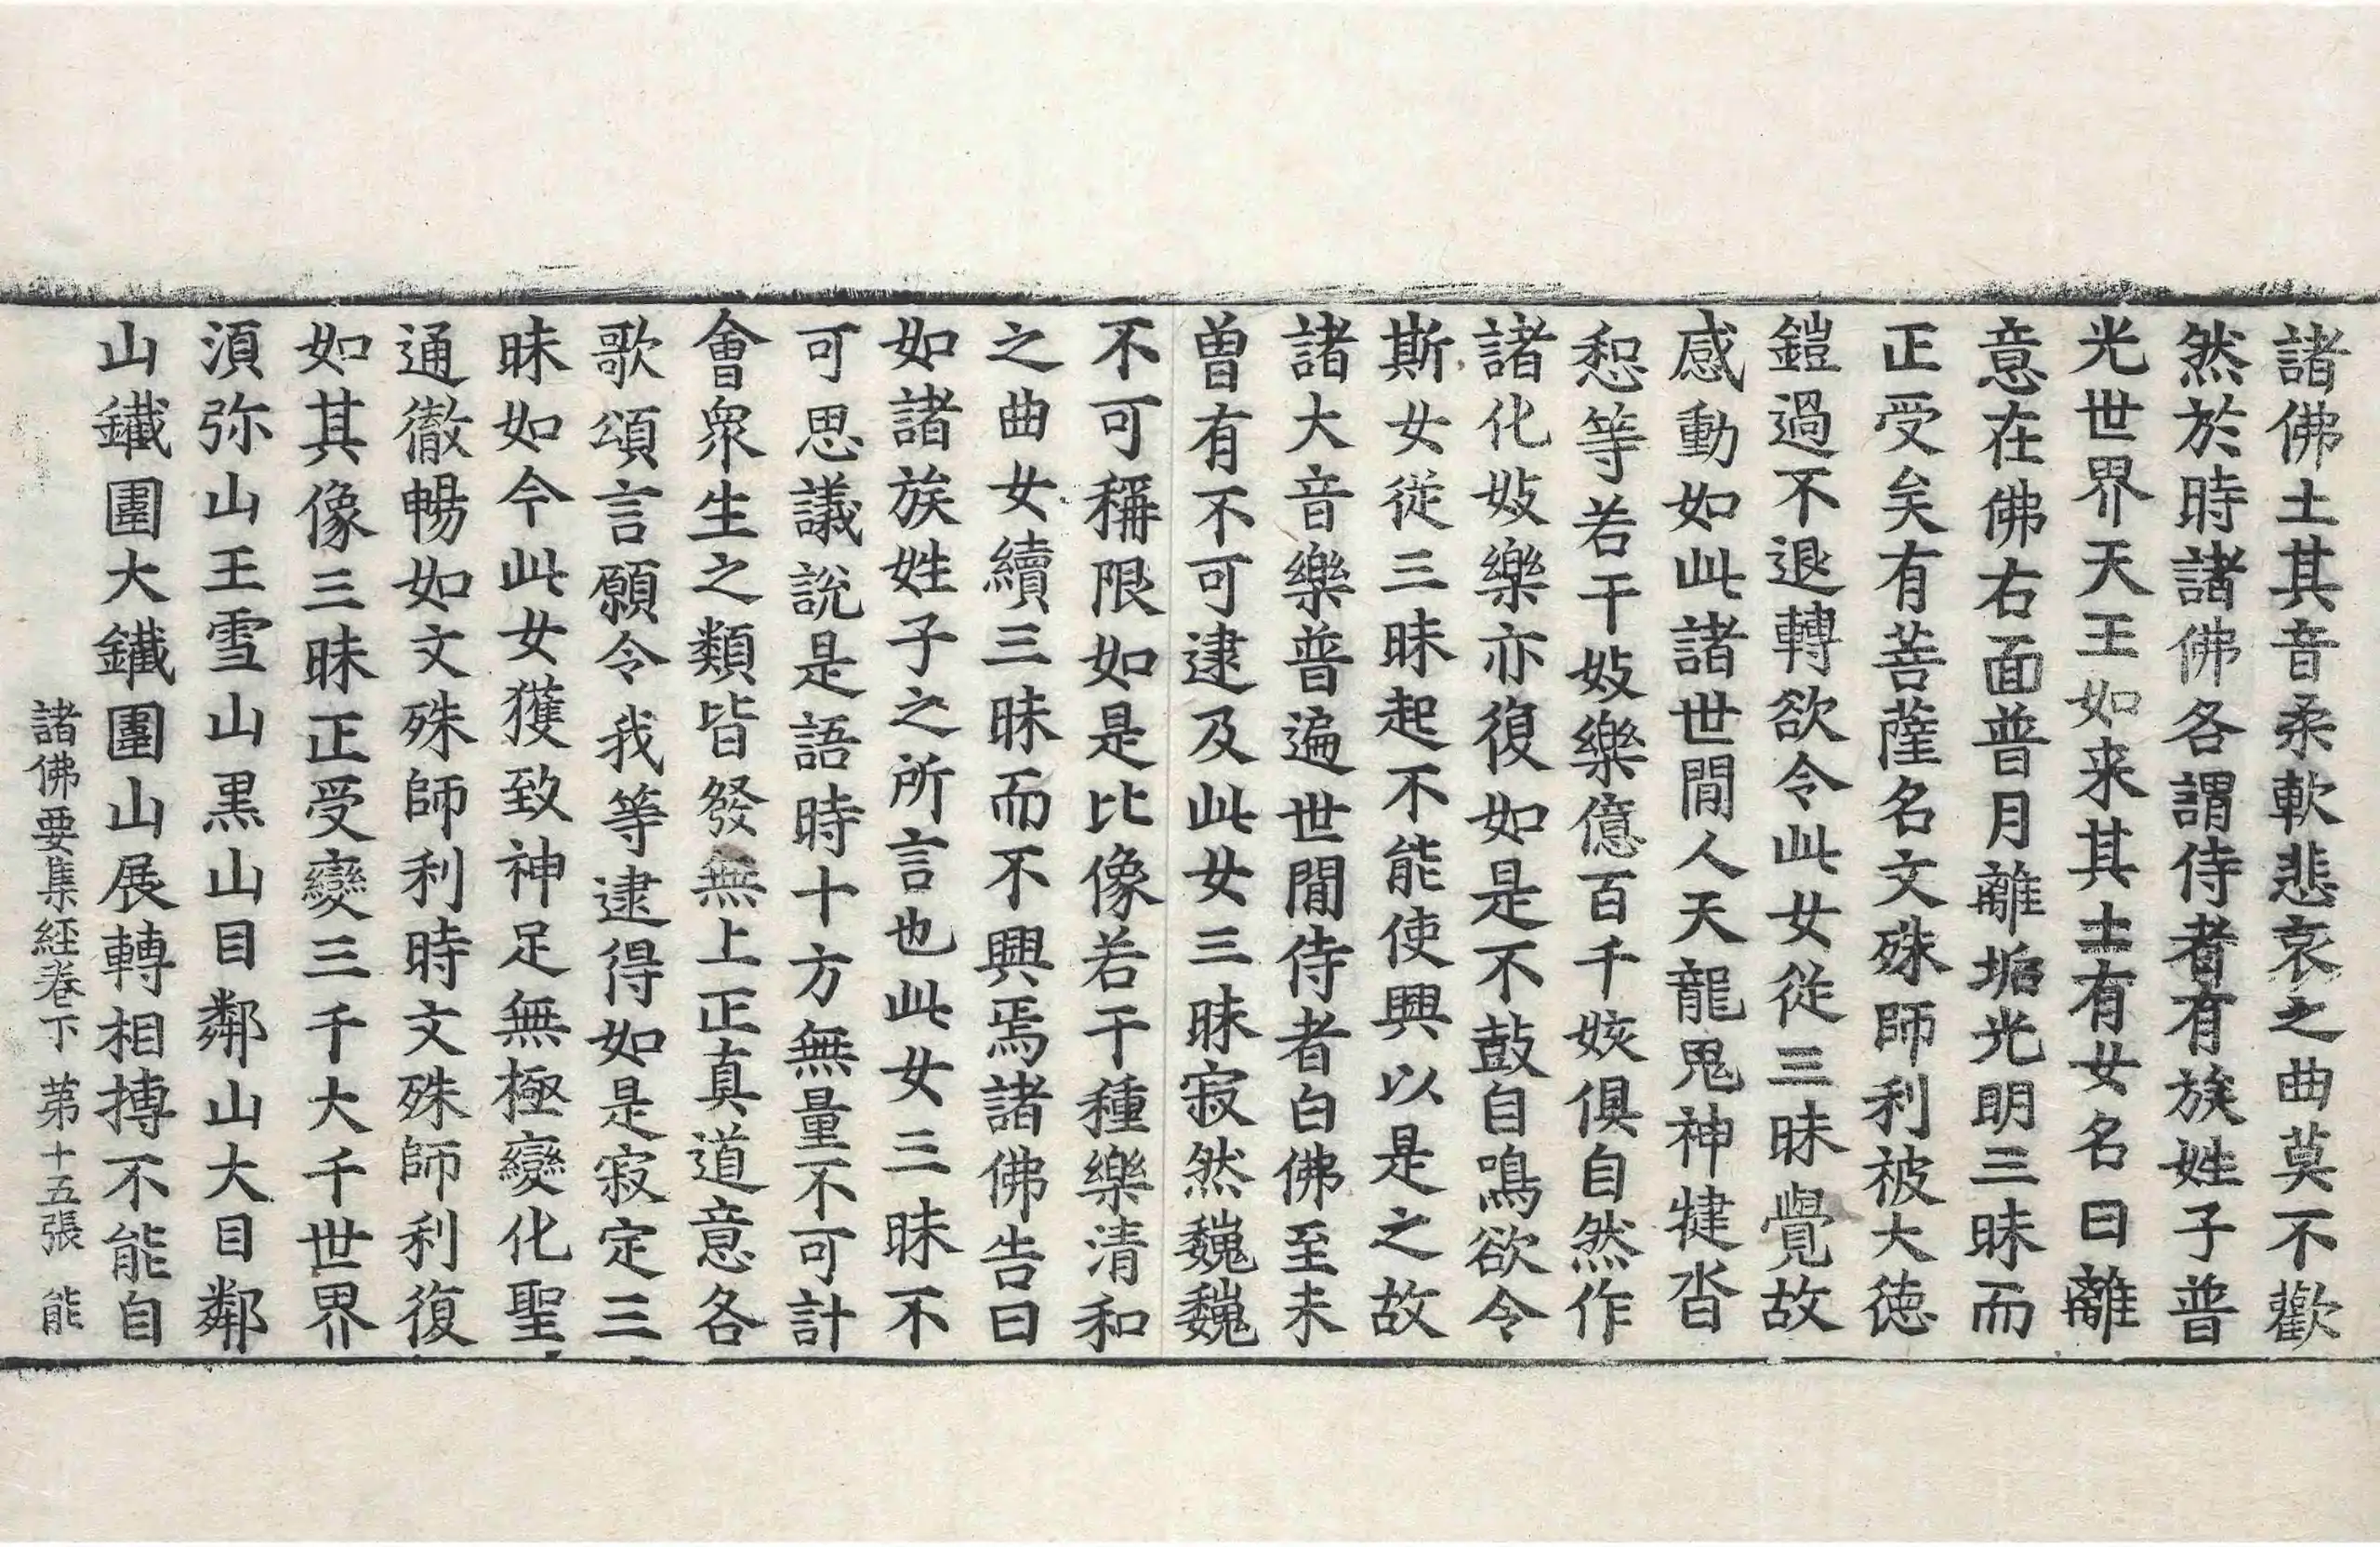 諸佛土其音柔軟悲哀之曲莫不歡
然於時諸佛各謂侍者有族姓子普
光世界天王如来其土有女名曰離
意在佛右面普月離垢光明三昧而
正受矣有菩薩名文殊師利被大德
鎧過不退轉欲令此女從三昧覺故
感動如此諸世間人天龍鬼神揵沓
惒等若干妓樂億百千姟俱自然作
諸化妓樂亦復如是不鼓自鳴欲令
斯女從三昧起不能使興以是之故
諸大音樂普遍世間侍者白佛至未
曾有不可逮及此女三昧寂然巍巍
不可稱限如是比像若干種樂清和
之曲女續三昧而不興焉諸佛告曰
如諸族姓子之所言也此女三昧不
可思議說是語時十方無量不可計
會衆生之類皆發無上正真道意各
歌頌言願令我等逮得如是寂定三
昧如今此女獲致神足無極變化聖
通徹暢如文殊師利時文殊師利復
如其像三昧正受變三千大千世界
湏弥山王雪山黒山目鄰山大目鄰
山鐵圍大鐵圍山展轉相搏不能自
諸佛要集経卷下 第十五張 能